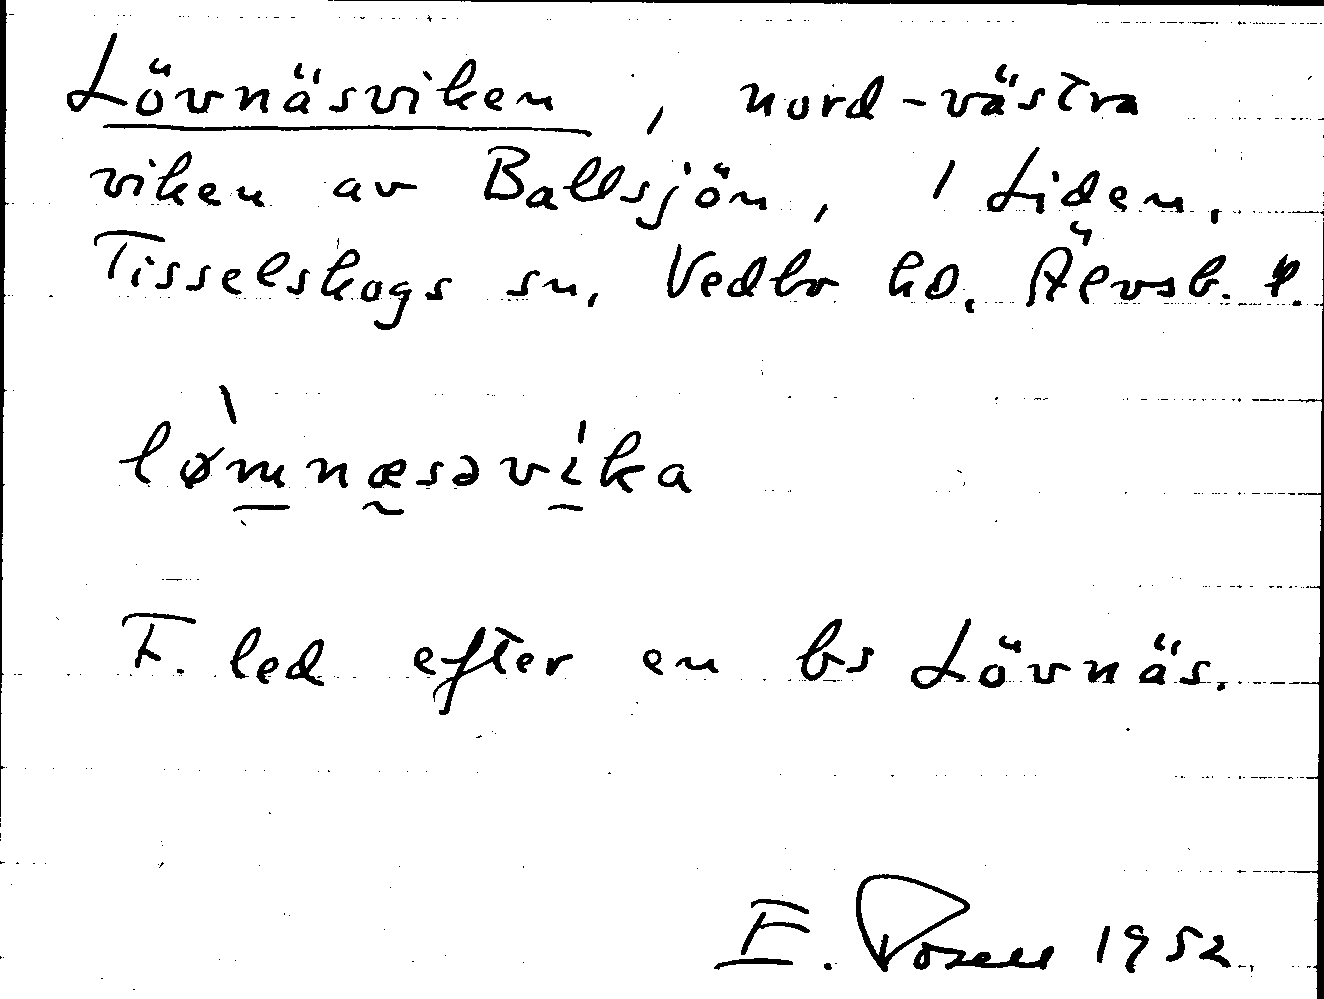 Lövnäsviken, nord-västra
viken av Ballsjön, 1 Liden,
Tisselskogs sn, Vedbo hd. Älvsb. l.
lø̀mnæsəvi̍ka
F. led efter en bs Lövnäs.
E. Rosell 1952